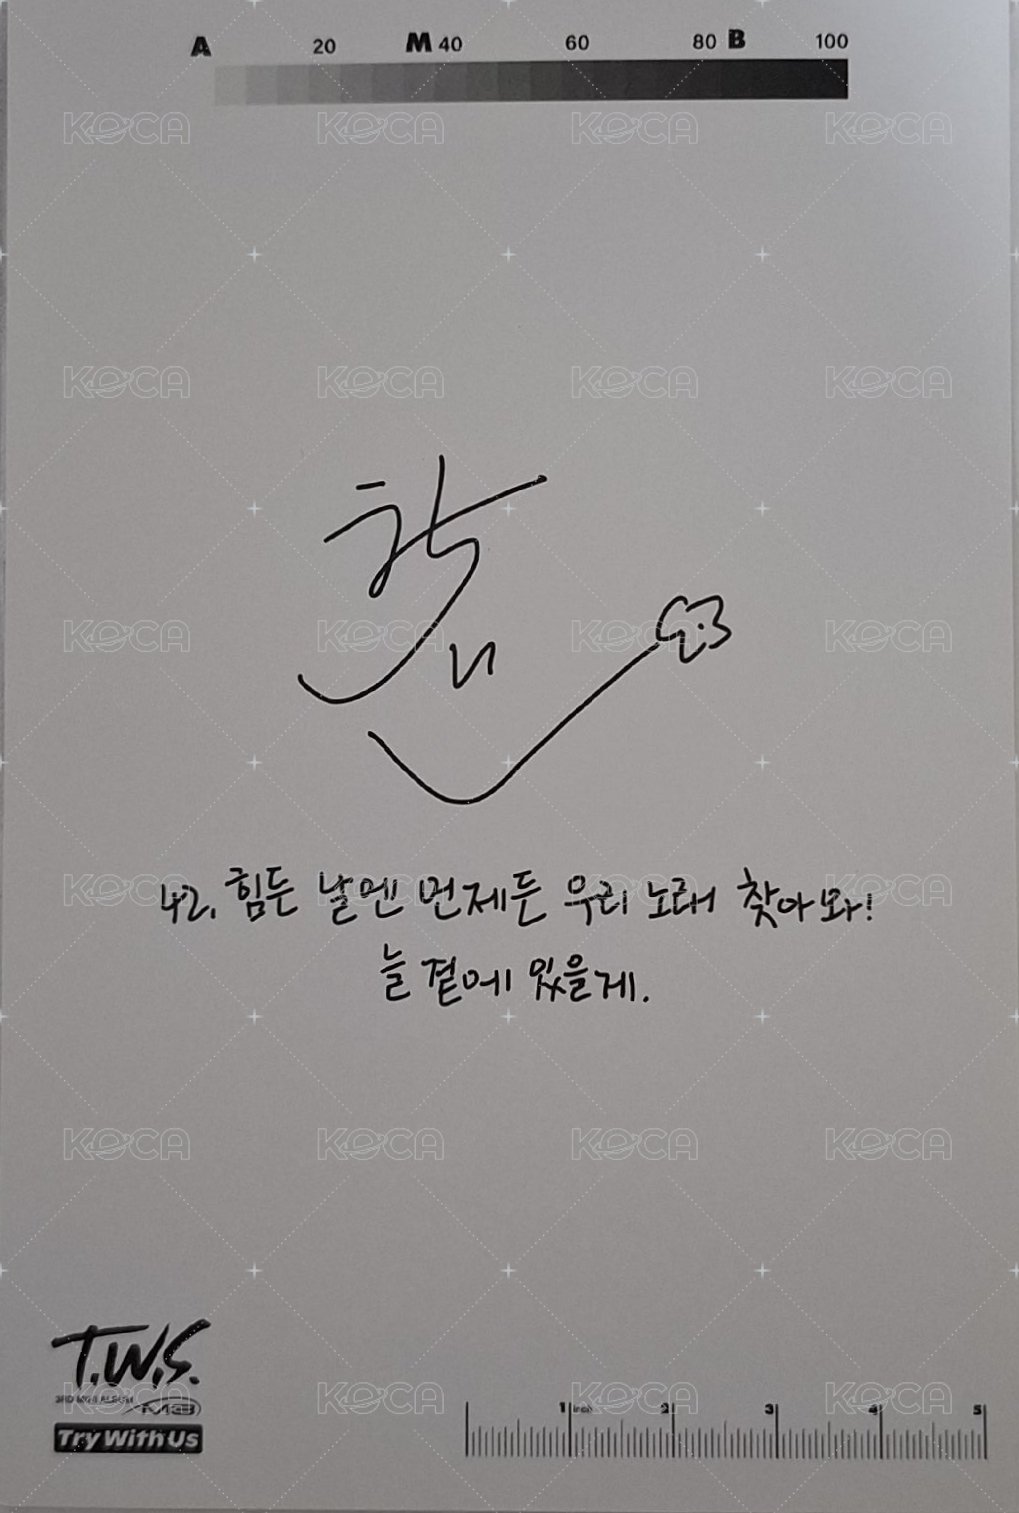 A 20 M 40 60 80 B 100
42. 힘든 날엔 언제든 우리 노래 찾아와!
늘 곁에 있을게.
T.W.S.
3RD MINI ALBUM
Try With Us
1 inch 2 3 4 5
KOCA KOCA KOCA KOCA
KOCA KOCA KOCA KOCA
KOCA KOCA KOCA KOCA
KOCA KOCA KOCA KOCA
KOCA KOCA KOCA KOCA
KOCA KOCA KOCA KOCA